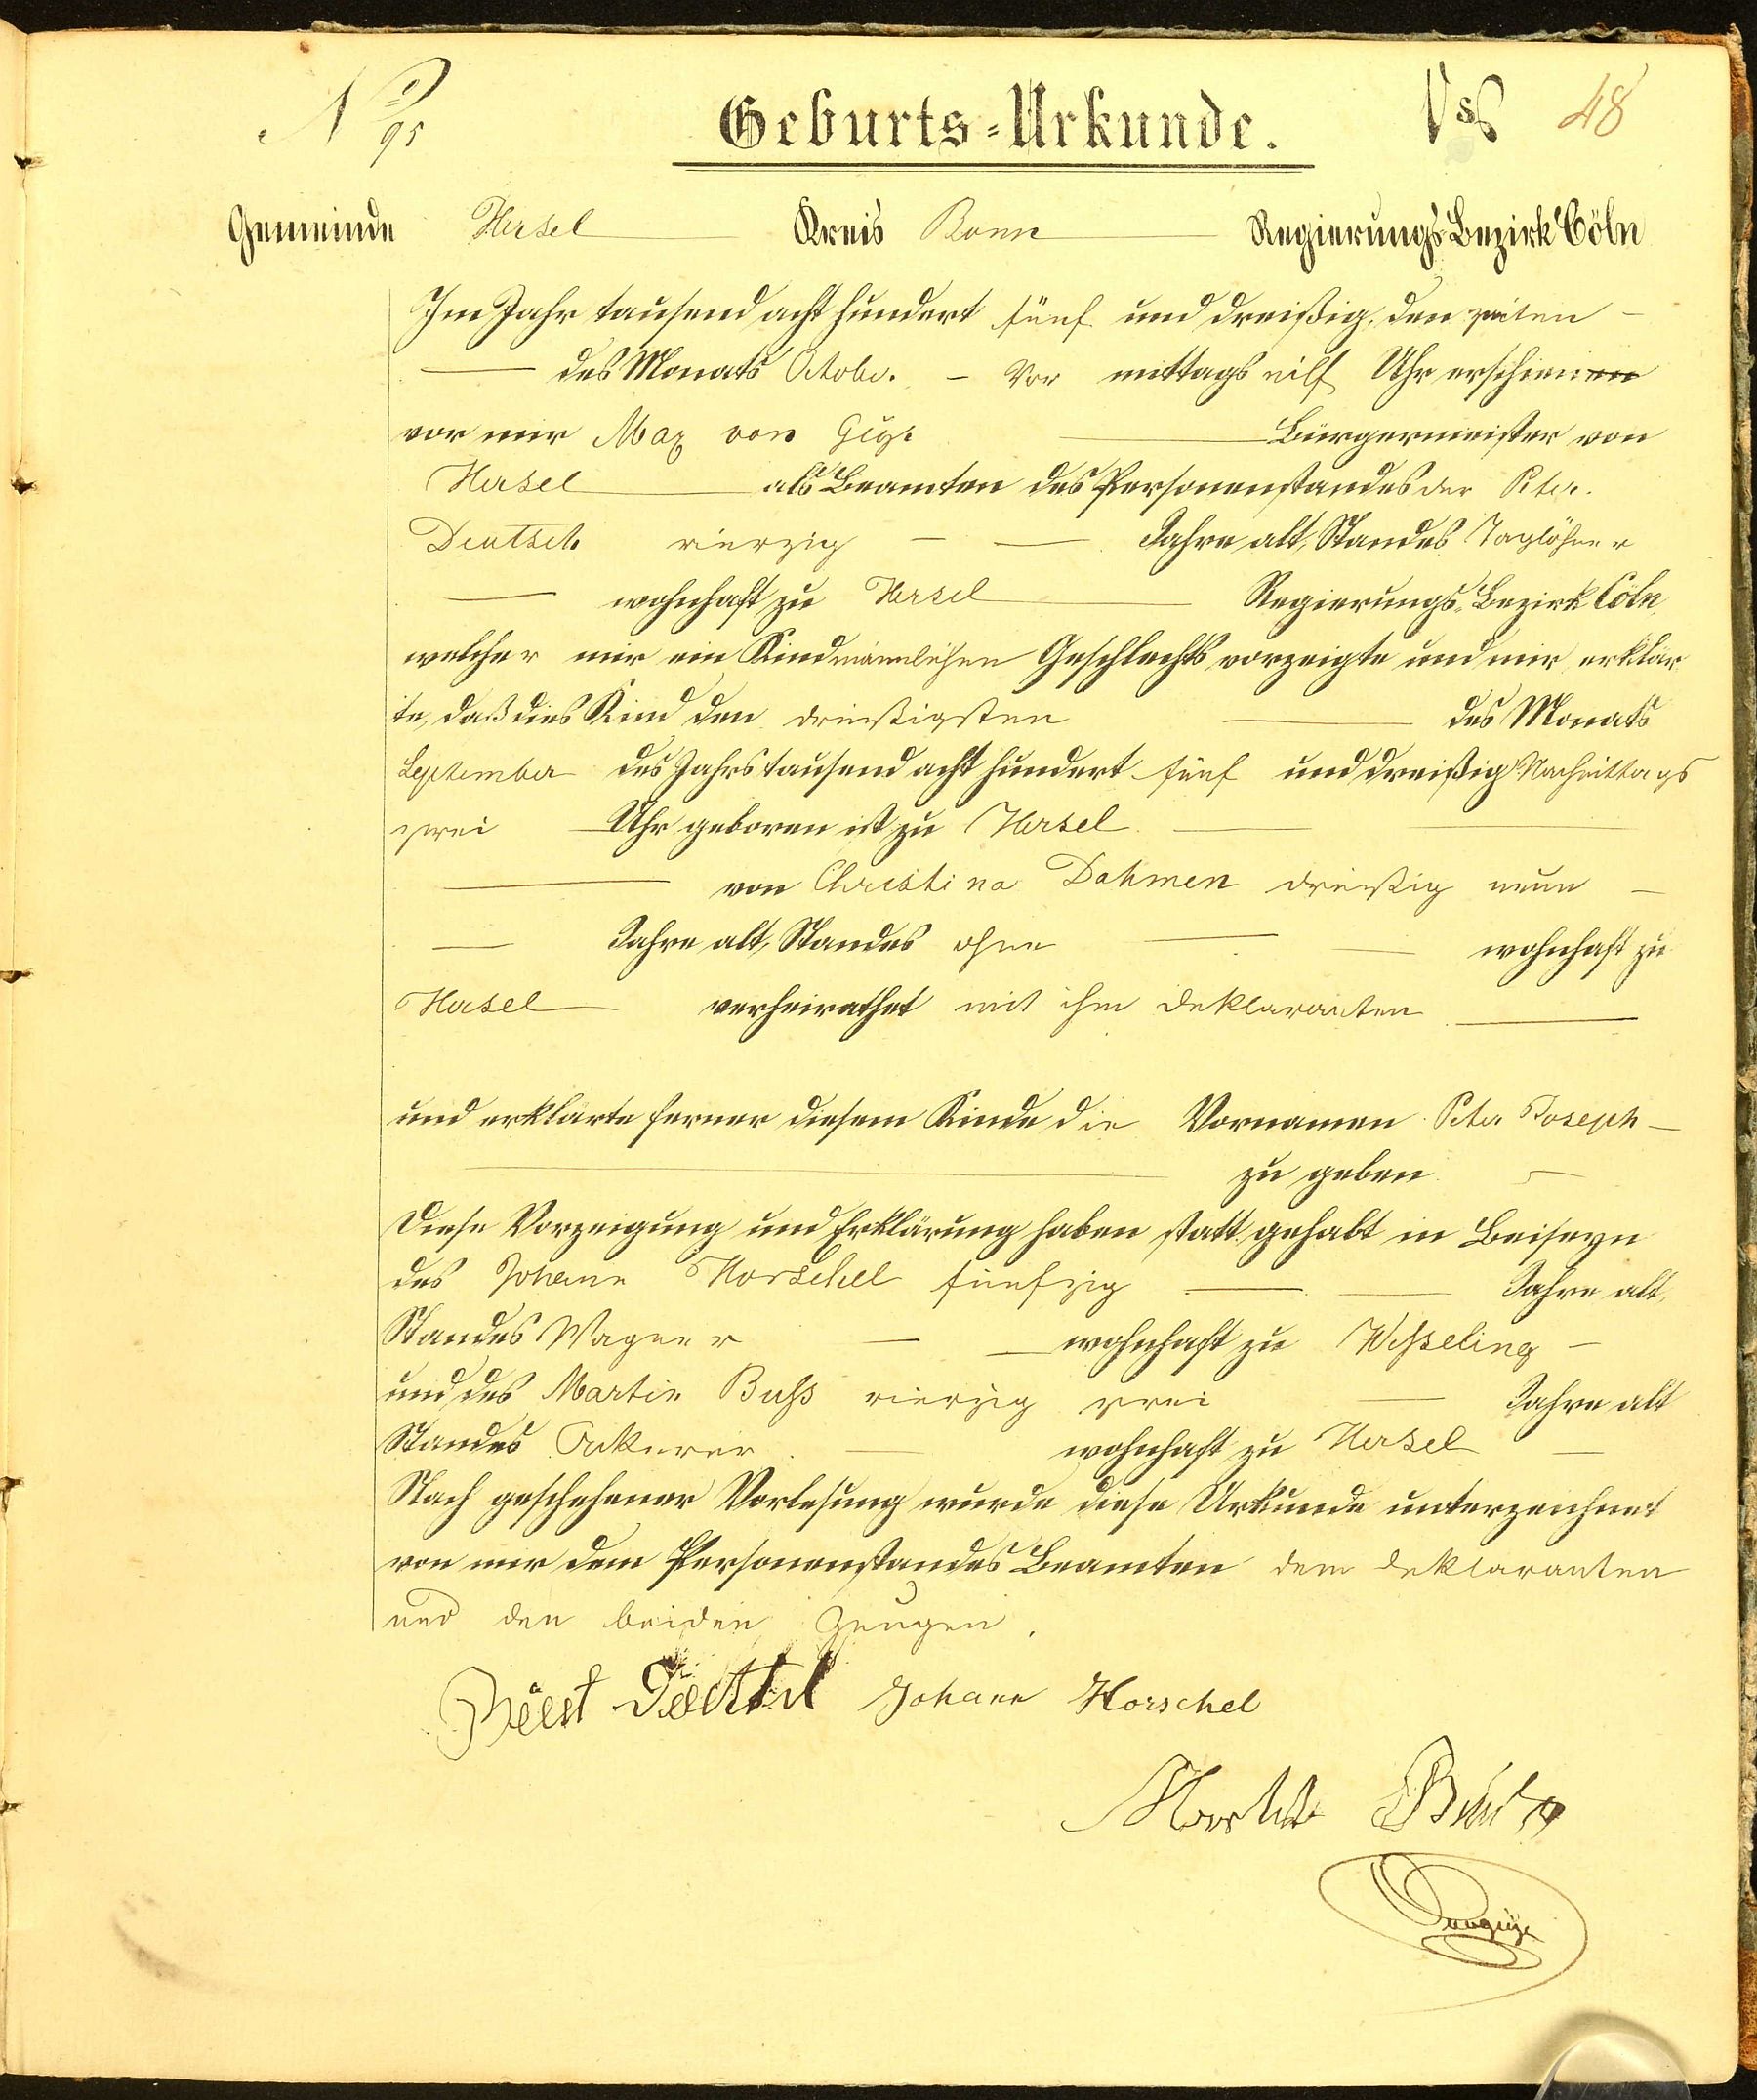 No 95
Geburts-Urkunde. 48
Gemeinde Hersel Kreis Bonn Regierungs-Bezirk Cöln
Im Jahr tausend acht hundert fünf und dreißig, den zweiten
des Monats Octobr. Vor mittags eilf Uhr erschien
vor mir Max von Bürgermeister von
Hersel als Beamten des Personenstandes der Peter
Deutsch vierzig Jahre alt, Standes Taglöhner
wohnhaft zu Hersel Regierungs-Bezirk Cöln
welcher mir ein Kind männlichen Geschlechts vorzeigte und mir erklär
te, daß dies Kind den dreißigsten des Monats
September des Jahrs tausend acht hundert fünf und dreißig Nachmittags
zwei Uhr geboren ist zu Hersel
von Christina Dahmen dreißig neun
Jahre alt, Standes ohne wohnhaft zu
Hersel verheirathet mit ihm Deklaranten
und erklärte ferner diesem Kinde die Vornamen Peter Joseph
zu geben
Diese Vorzeigung und Erklärung haben statt gehabt in Beiseyn
des Johann Horschel fünfzig Jahre alt,
Standes Wagner wohnhaft zu Weßeling
und des Martin Buß vierzig zwei Jahre alt
Standes Ackerer wohnhaft zu Hersel
Nach geschehener Vorlesung wurde diese Urkunde unterzeichnet
von mir dem Personenstandes Beamten dem Deklaranten
und den beiden Zeugen.
Johann Horschel